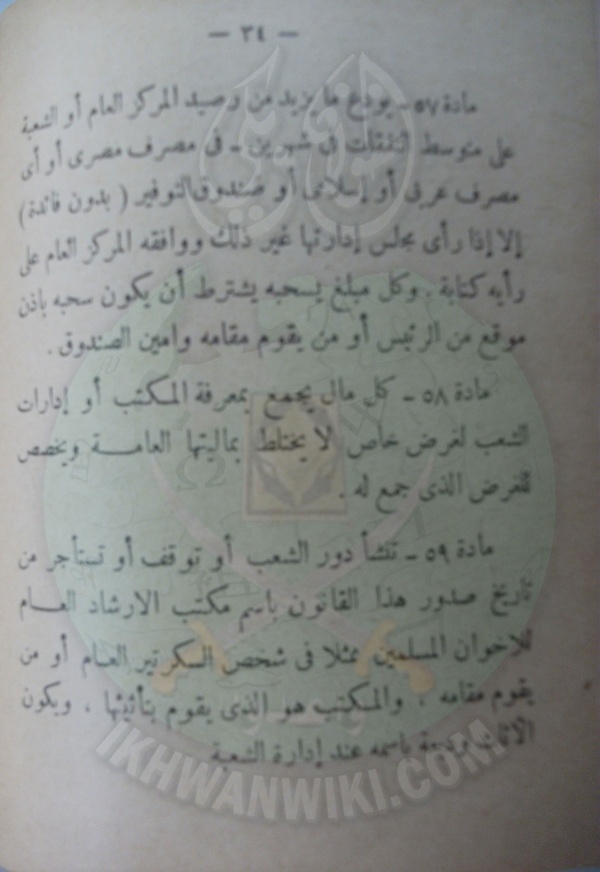 — ٣٤ —
مادة ٥٧ — يودع ما يزيد من رصيد المركز العام أو الشعبة
على متوسط النفقات فى شهرين — فى مصرف مصرى أو أى
مصرف عربى أو إسلامى أو صندوق التوفير ( بدون فائدة )
إلا إذا رأى مجلس إدارتها غير ذلك ووافقه المركز العام على
رأيه كتابة . وكل مبلغ يسحبه يشترط أن يكون سحبه باذن
موقع من الرئيس أو من يقوم مقامه وامين الصندوق .
مادة ٥٨ — كل مال يجمع بمعرفة المكتب أو إدارات
الشعب لغرض خاص لا يختلط بماليتها العامة ويخصص
للغرض الذى جمع له .
مادة ٥٩ — تنشأ دور الشعب أو توقف أو تستأجر من
تاريخ صدور هذا القانون باسم مكتب الارشاد العام
للاخوان المسلمين ممثلا فى شخص السكرتير العام أو من
يقوم مقامه ، والمكتب هو الذى يقوم بتأثيثها ، ويكون
الاثاث وديعة باسمه عند إدارة الشعبة
IKHWANWIKI.COM